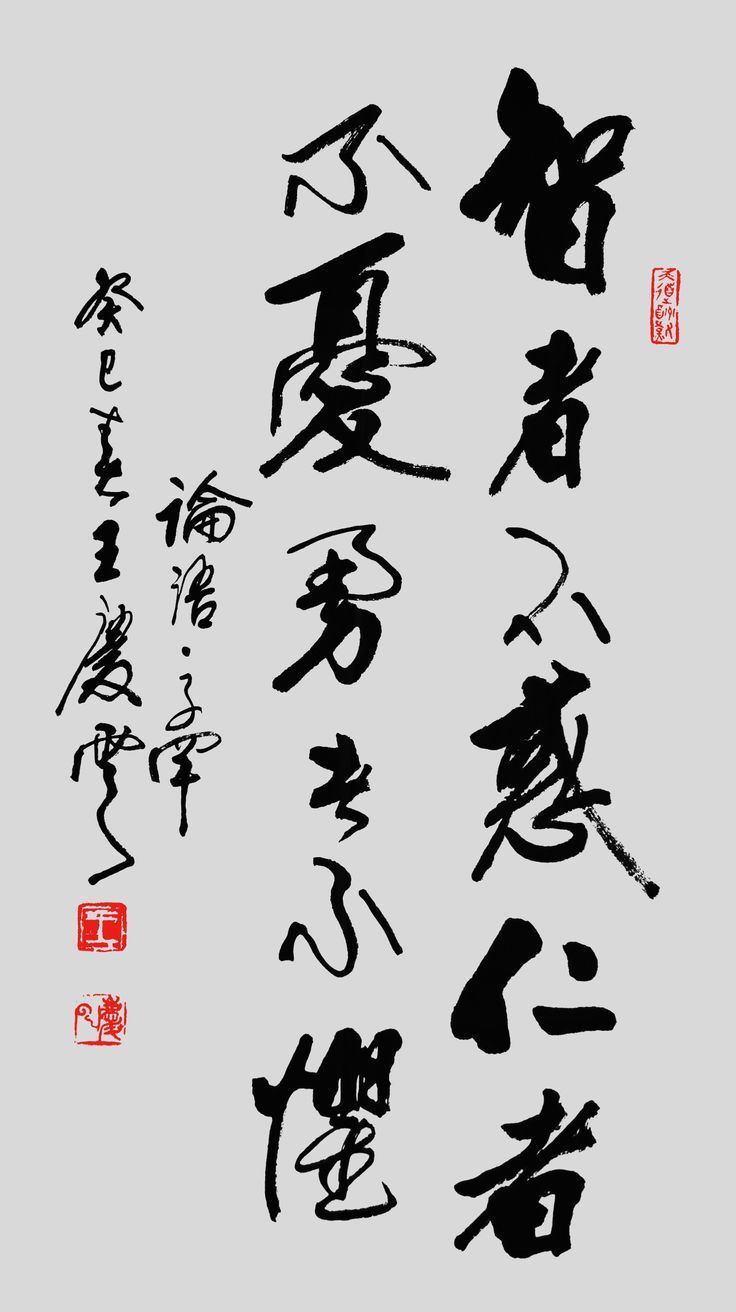 智者不惑仁者
不憂勇者不懼
論語·子罕
癸巳春王慶雲